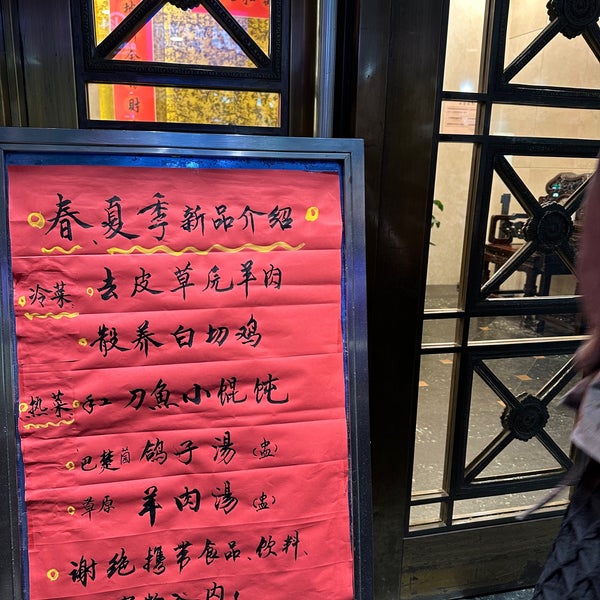 财
春、夏季新品介绍
冷菜 去皮草元羊肉
散养白切鸡
热菜 手工刀魚小馄饨
巴楚菌鸽子湯(盅)
草原 羊肉湯(盅)
谢绝携带食品、饮料、
入内!